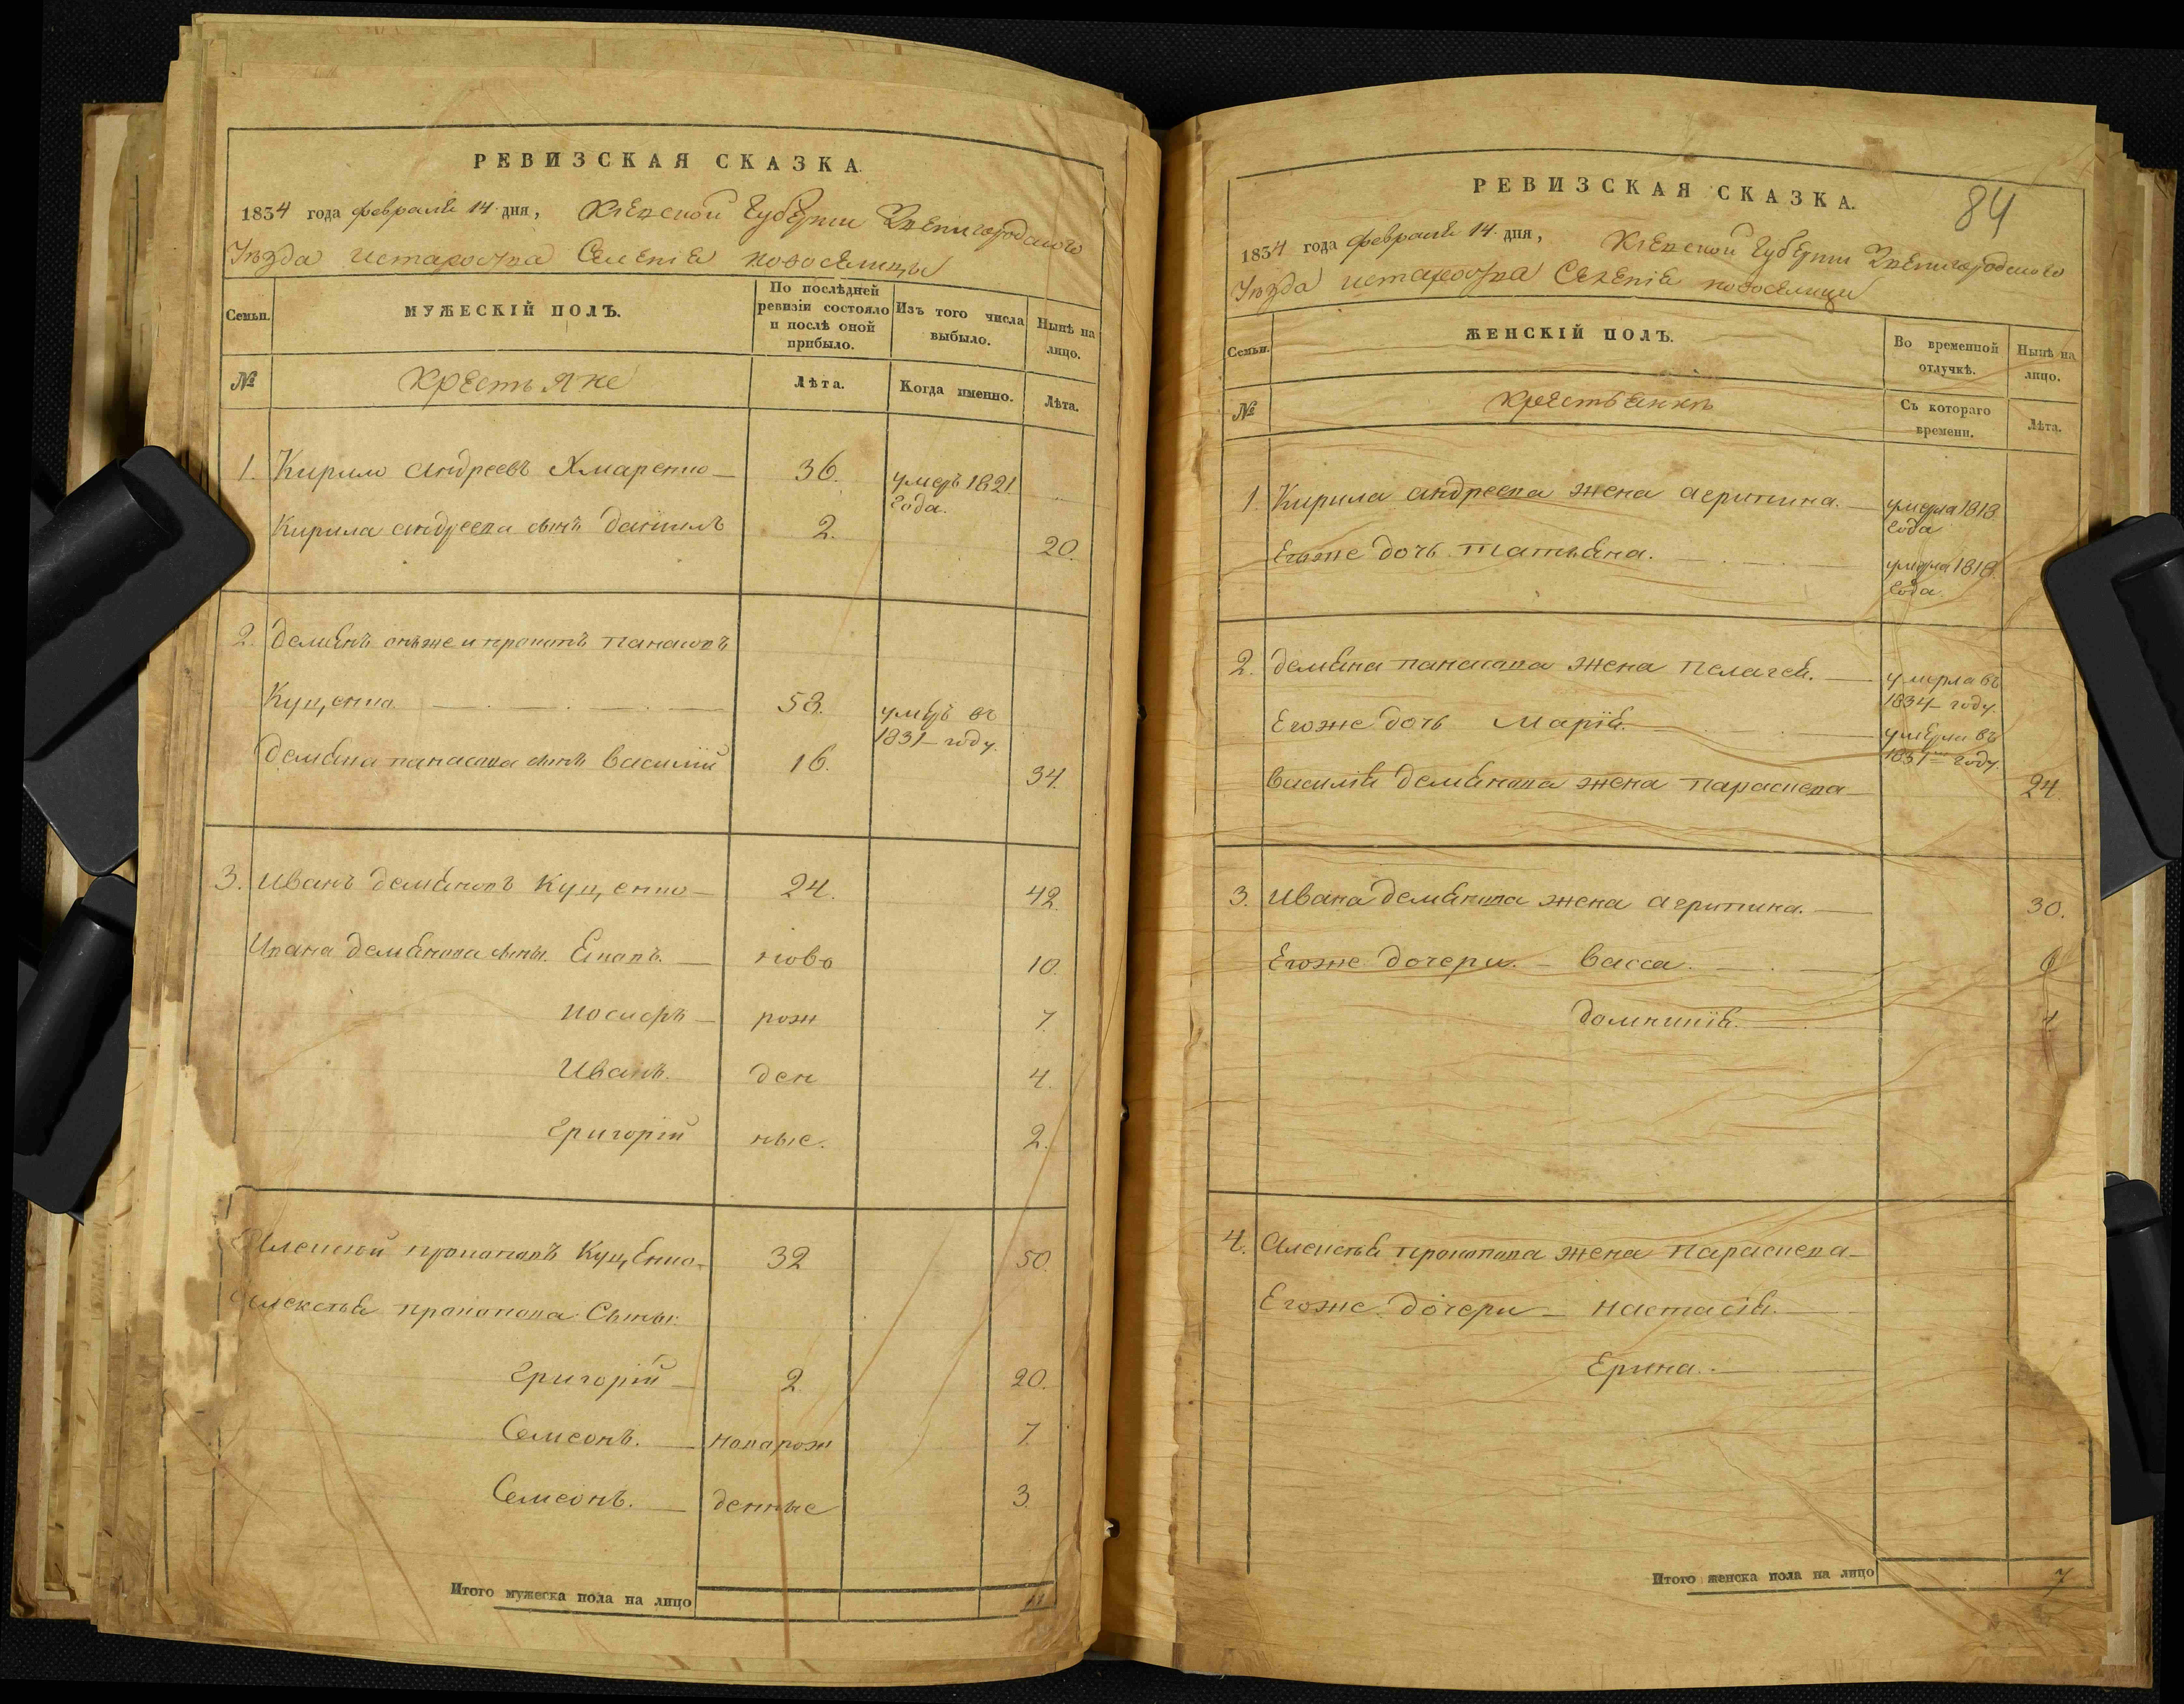 РЕВИЗСКАЯ СКАЗКА.
1834 года февраля 14 дня, Кіевской Губерніи Звенигородского
Уезда Селенія новоселицы
Семьи.
МУЖЕСКІЙ ПОЛЪ.
По послѣдней ревизіи состояло и послѣ оной прибыло.
Изъ того числа выбыло.
Нынѣ на лицо.
№
Крестьяне
Лѣта.
Когда именно.
Лѣта.
1. Кирило андреевъ Хмаренко 36. умеръ 1821 года.
Кирила андреева сынъ даниилъ 2. 20.
2. демянъ онъже и панасовъ
Куценко 53. умеръ въ 1831 году.
демяна панасова сынъ василій 16. 34.
3. иванъ демяновъ Куценко 24. 42.
Ивана демянова сыны. 10.
ново
иосифъ рож 7.
Иванъ. ден 4.
григорій ные. 2.
Алексій прокоповъ Куценко 32 50.
Алексѣя прокопова Сыны:
григорій 2 20.
Семионъ. новарож 7.
Семионъ. денные 3.
Итого мужеска пола на лицо
РЕВИЗСКАЯ СКАЗКА.
84
1834 года февраля 14 дня, Кіевской Губерніи Звенигородского
Уезда Селенія новоселицы
Семьи.
ЖЕНСКІЙ ПОЛЪ.
Во временной отлучкѣ.
Нынѣ на лицо.
№
крестьянки
Съ котораго времени.
Лѣта.
1. Кирила андреева жена агрипина. умерла 1818 года
Егоже дочь татьяна. умерла 1818 года.
2. демяна панасова жена пелагея. умерла въ 1834 году.
Егоже дочь Марія. умерла въ 1831 году.
василія демянова жена параскева 24.
3. ивана демянова жена агрипина. 30.
Егоже дочери. васса.
домникія.
4. Алексѣя прокопова жена параскева
Егоже дочери настасія.
Ерина.
Итого женска пола на лицо 7